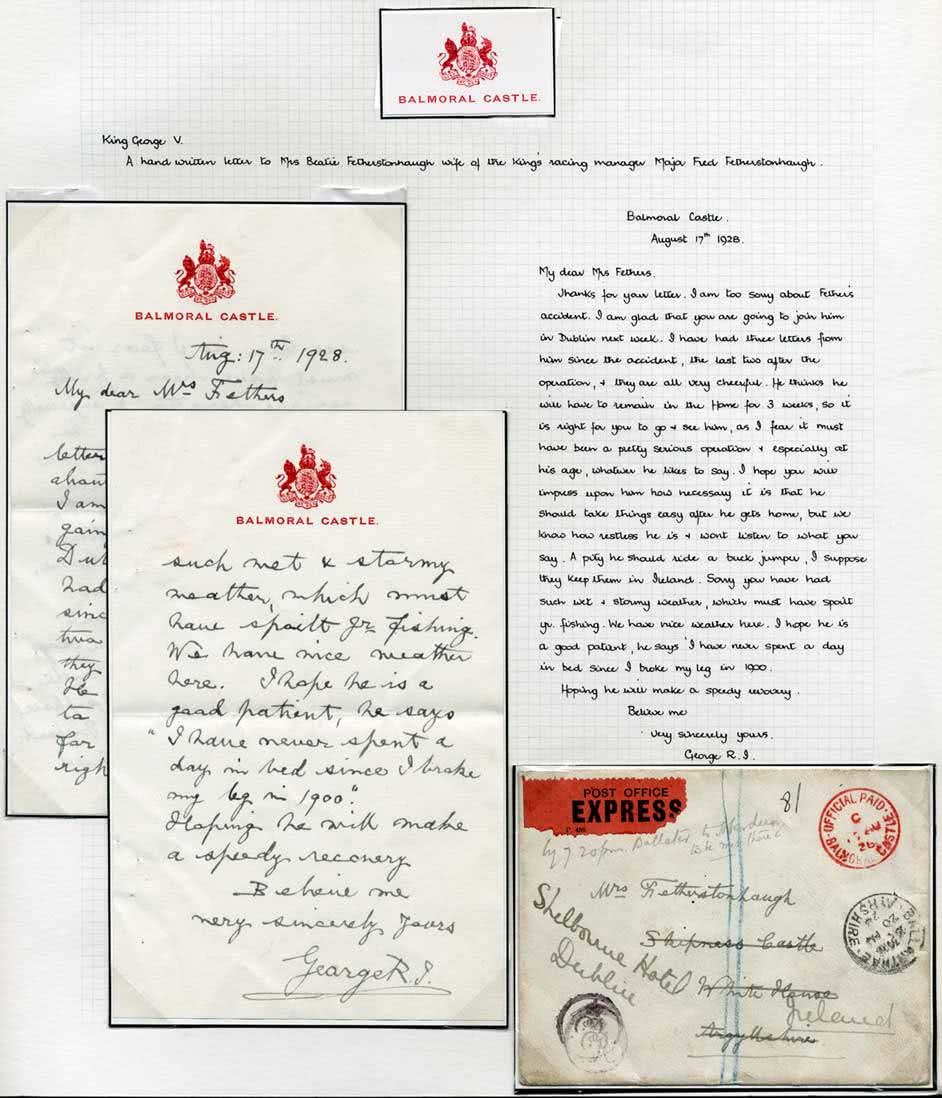 BALMORAL CASTLE.
King George V.
A hand written letter to Mrs Beatie Fetherstonhaugh wife of the King's racing manager Major Fred Fetherstonhaugh.
BALMORAL CASTLE.
Aug: 17th 1928.
My dear Mrs Fethers
letter
I am
Du
had
sinc
two
they
He
to
for
righ
BALMORAL CASTLE.
such wet & stormy
weather, which must
have spoilt yr. fishing.
We have nice weather
here. I hope he is a
good patient, he says
"I have never spent a
day in bed since I broke
my leg in 1900".
Hoping he will make
a speedy recovery
Believe me
very sincerely yours
George R.I.
Balmoral Castle.
August 17th 1928.
My dear Mrs Fethers.
Thanks for your letter. I am too sorry about Fether's
accident. I am glad that you are going to join him
in Dublin next week. I have had three letters from
him since the accident, the last two after the
operation, & they are all very cheerful. He thinks he
will have to remain in the Home for 3 weeks, so it
is right for you to go & see him, as I fear it must
have been a pretty serious operation & especially at
his age, whatever he likes to say. I hope you will
impress upon him how necessary it is that he
should take things easy after he gets home, but we
know how restless he is & wont listen to what you
say. A pity he should ride a buck jumper, I suppose
they keep them in Ireland. Sorry you have had
such wet & stormy weather, which must have spoilt
yr. fishing. We have nice weather here. I hope he is
a good patient, he says 'I have never spent a day
in bed since I broke my leg in 1900.
Hoping he will make a speedy recovery.
Believe me
very sincerely yours.
George R.I.
POST OFFICE
EXPRESS
81
OFFICIAL PAID
BALMORAL CASTLE
by 7 20pm Ballater to Aberdeen
Mrs Fetherstonhaugh
Skipness Castle
Shelbourne Hotel
Dublin
White House
Ireland
Argyllshire